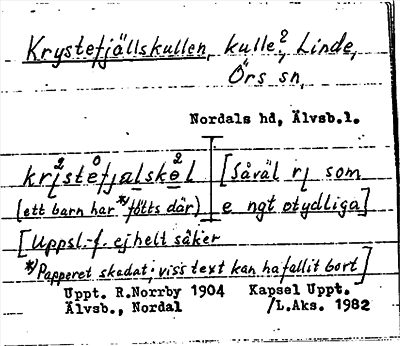 Krystefjällskullen, kulle?, Linde,
Örs sn,
Nordals hd, Älvsb.l.
krɩ²stefjalskə²l [Såväl rɩ som
(ett barn har *)fötts där) e ngt otydliga]
[Uppsl.-f. ej helt säker
*) Papperet skadat; viss text kan ha fallit bort]
Uppt. R.Norrby 1904 Kapsel Uppt.
Älvsb., Nordal /L.Aks. 1982